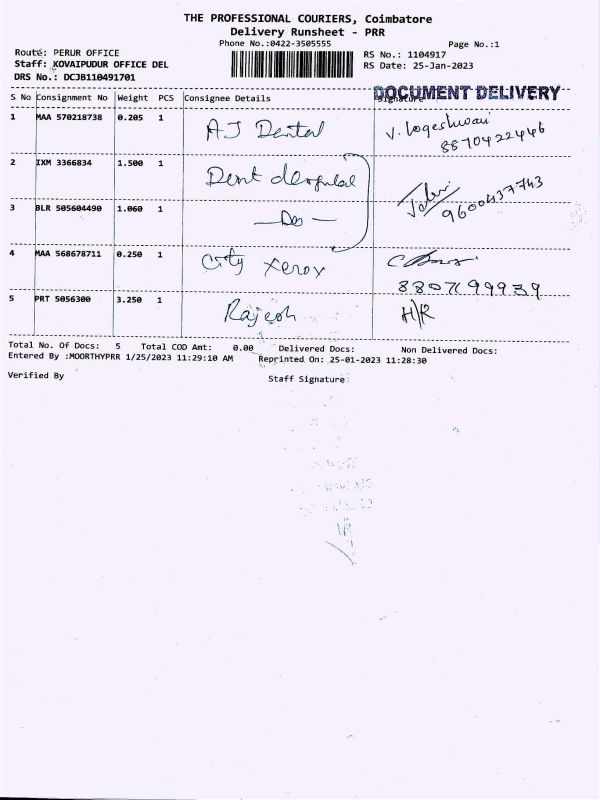 THE PROFESSIONAL COURIERS, Coimbatore
Delivery Runsheet - PRR
Phone No.:0422-3505555
Page No.:1
Route: PERUR OFFICE
RS No.: 1104917
Staff: KOVAIPUDUR OFFICE DEL
RS Date: 25-Jan-2023
DRS No.: DCJB110491701
DOCUMENT DELIVERY
S No Consignment No Weight PCS Consignee Details Signature
1 MAA 570218738 0.205 1 AJ Dental V. Logeshwari
8870422446
2 IXM 3366834 1.500 1 Dent
9600437743
3 BLR 505604490 1.060 1 — Do —
4 MAA 568678711 0.250 1 City Xerox
8807199939
5 PRT 5056300 3.250 1 Rajesh H/R
Total No. Of Docs: 5 Total COD Amt: 0.00 Delivered Docs: Non Delivered Docs:
Entered By :MOORTHYPRR 1/25/2023 11:29:10 AM Reprinted On: 25-01-2023 11:28:30
Verified By Staff Signature: